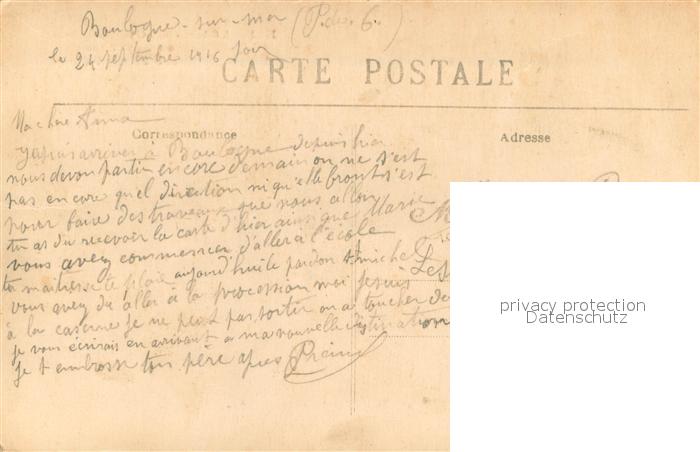 Boulogne-sur-mer (P.de.C.)
le 24 septembre 1916 Soir
CARTE POSTALE
Ma chere Anna
Correspondance
Adresse
arriver à Boulogne depuis hier
nous devon partir encore demain on ne s'est
pas encore quel direction ni quelle front s'est
pour faire des traveux que nous allon
tu as du recevoir la carte d'hier ainsi que Marie
vous avez commencer d'aller à l'école
ta maitresse te plaie aujourd'hui le pardon St michel
vous avez du aller à la procession moi je suis
à la caserne je ne peut pas sortir on a toucher de
je vous écrirais en arrivant a ma nouvelle destination
je t'embrasse ton père
privacy protection
Datenschutz